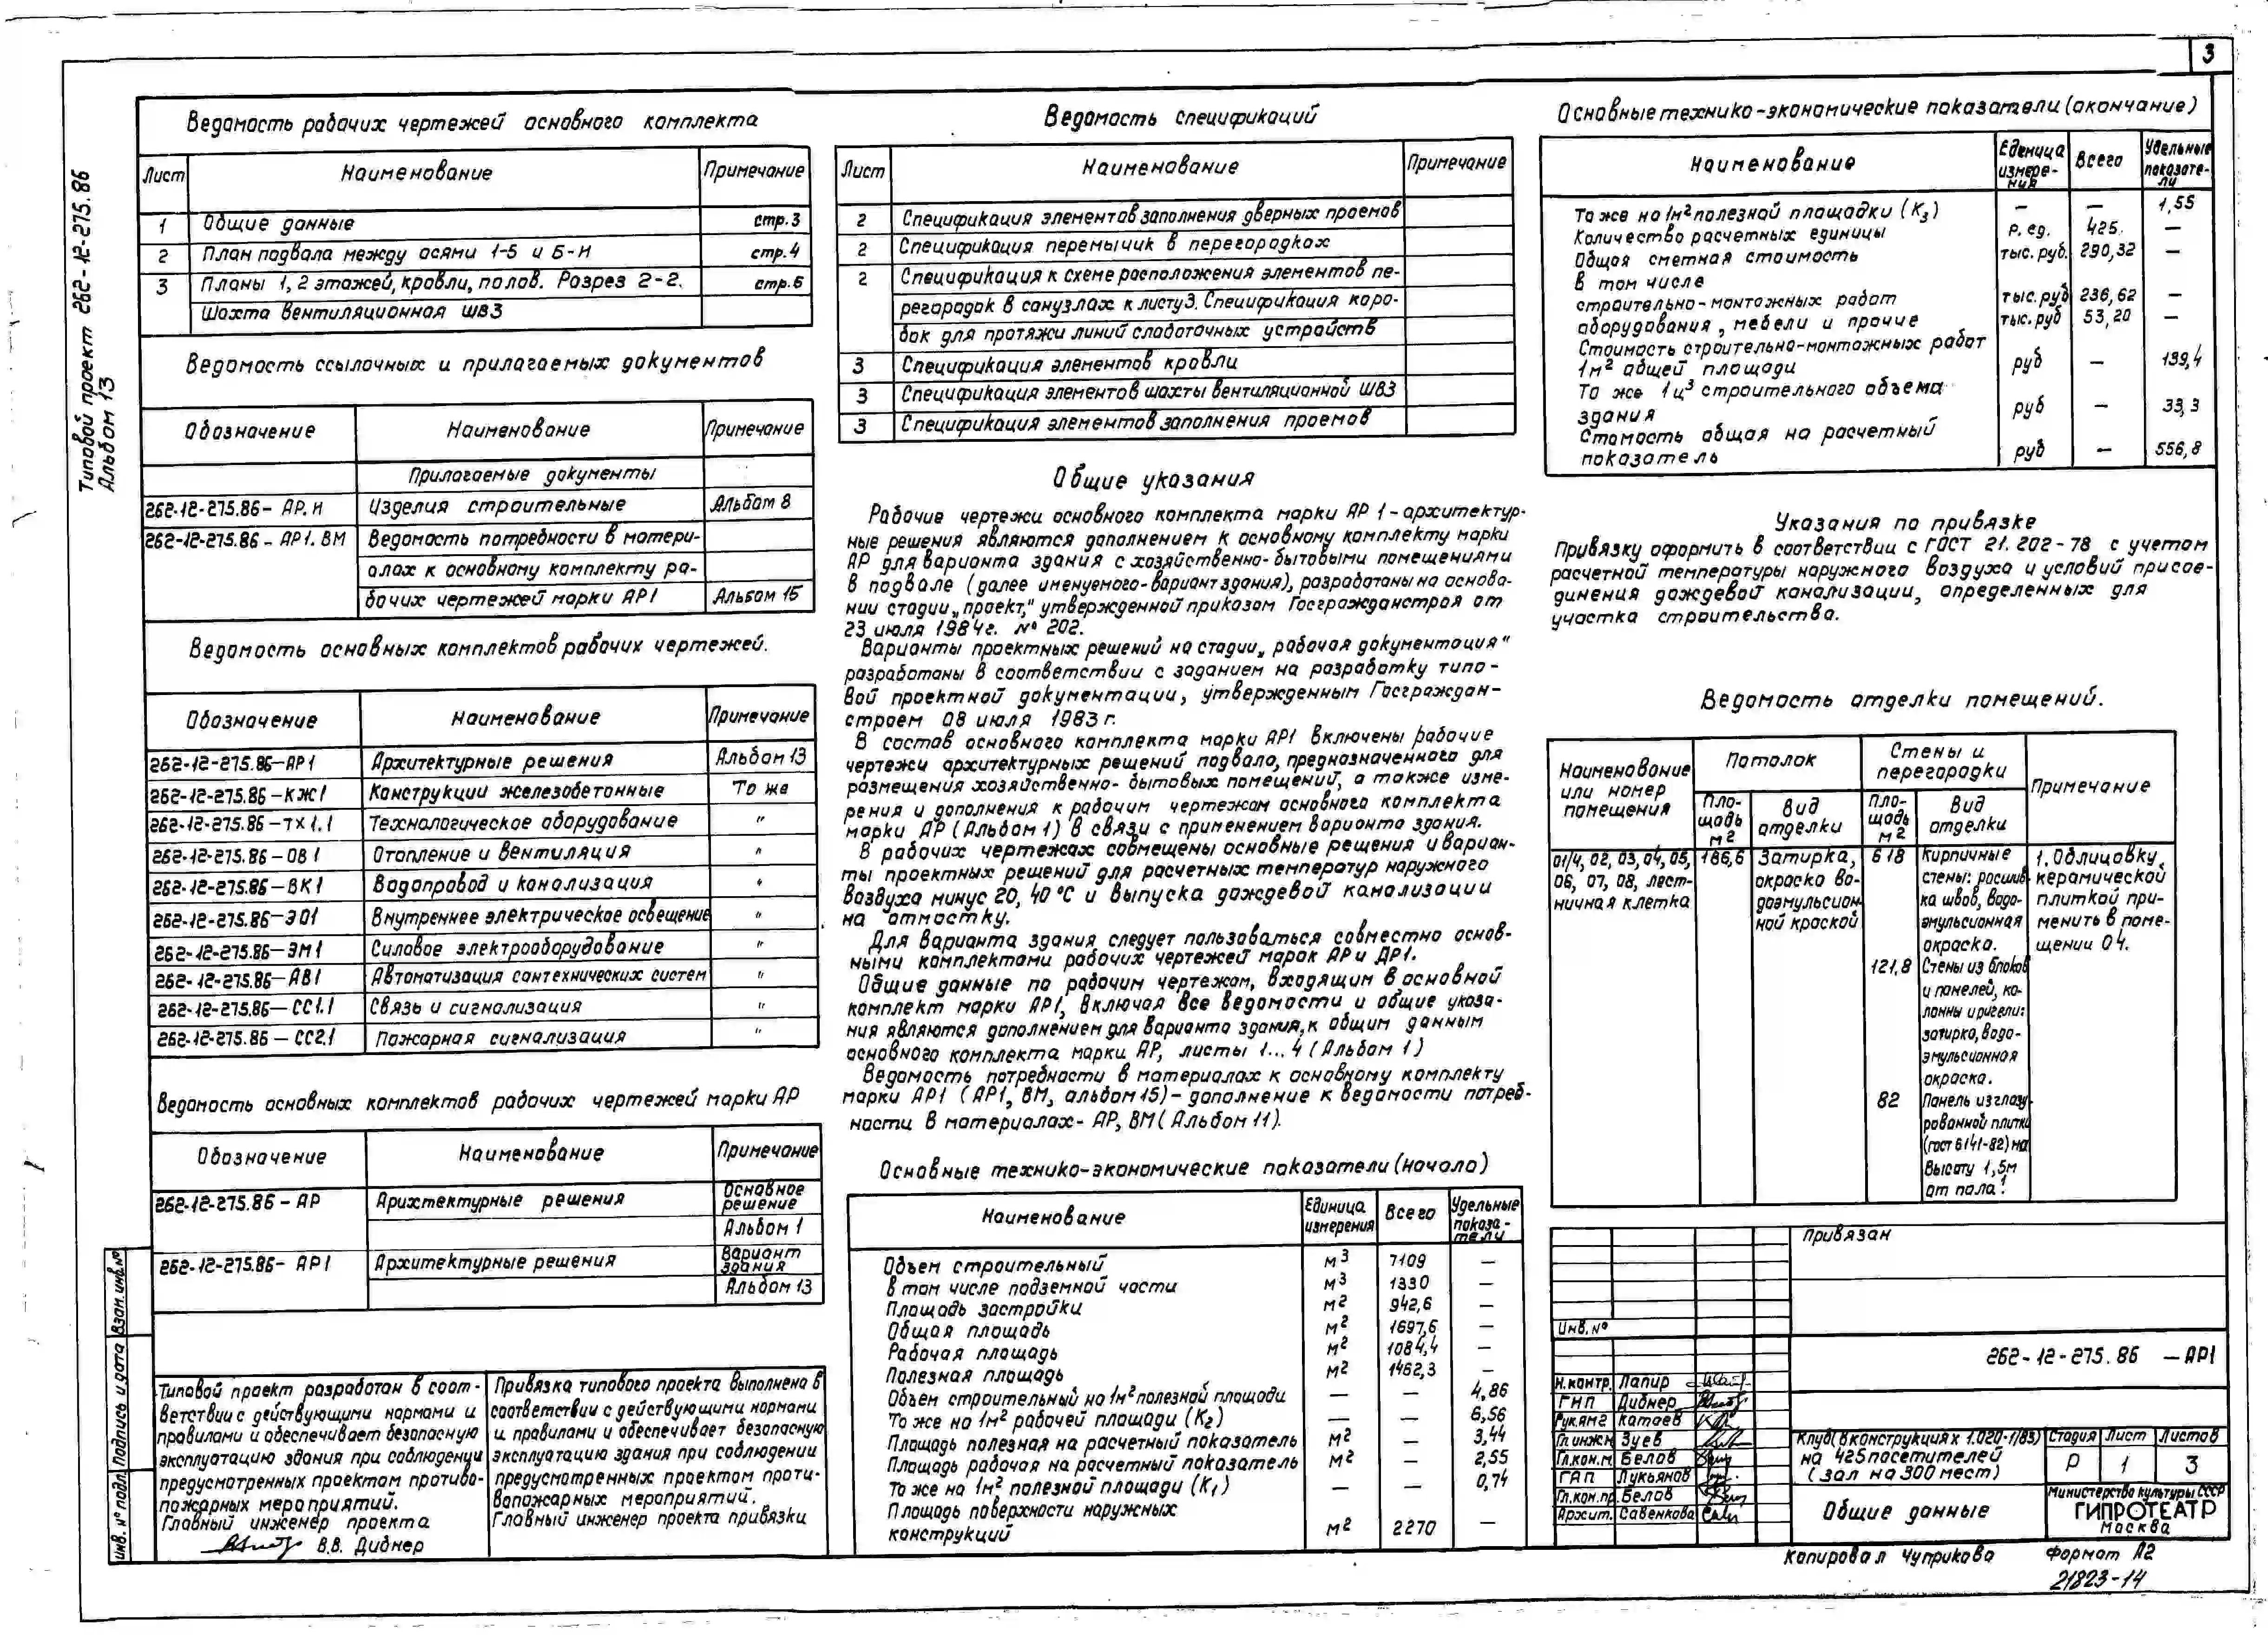 3
Типовой проект 262-12-275.86
Альбом 13
Ведомость рабочих чертежей основного комплекта
Лист Наименование Примечание
1 Общие данные стр.3
2 План подвала между осями 1-5 и Б-И стр.4
3 Планы 1, 2 этажей, кровли, полов. Разрез 2-2. стр.5
Шахта вентиляционная ШВ3
Ведомость ссылочных и прилагаемых документов
Обозначение Наименование Примечание
Прилагаемые документы
262-12-275.86- АР.И Изделия строительные Альбом 8
262-12-275.86 - АР1. ВМ Ведомость потребности в матери-
алах к основному комплекту ра-
бочих чертежей марки АР1 Альбом 15
Ведомость основных комплектов рабочих чертежей.
Обозначение Наименование Примечание
262-12-275.86-АР1 Архитектурные решения Альбом 13
262-12-275.86-КЖ1 Конструкции железобетонные То же
262-12-275.86-ТХ1.1 Технологическое оборудование "
262-12-275.86-ОВ1 Отопление и вентиляция "
262-12-275.86-ВК1 Водопровод и канализация "
262-12-275.86-ЭО1 Внутреннее электрическое освещение "
262-12-275.86-ЭМ1 Силовое электрооборудование "
262-12-275.86-АВ1 Автоматизация сантехнических систем "
262-12-275.86-СС1.1 Связь и сигнализация "
262-12-275.86-СС2.1 Пожарная сигнализация "
Ведомость основных комплектов рабочих чертежей марки АР
Обозначение Наименование Примечание
262-12-275.86- АР Арихтектурные решения Основное
решение
Альбом 1
262-12-275.86- АР1 Архитектурные решения Вариант
здания
Альбом 13
Типовой проект разработан в соот-
ветствии с действующими нормами и
правилами и обеспечивает безопасную
эксплуатацию здания при соблюдении
предусмотренных проектом противо-
пожарных мероприятий.
Главный инженер проекта
В.В. Дибнер
Привязка типового проекта выполнена в
соответствии с действующими нормами
и правилами и обеспечивает безопасную
эксплуатацию здания при соблюдении
предусмотренных проектом проти-
вопожарных мероприятий.
Главный инженер проекта привязки
Взам. инв.№
Подпись и дата
Инв. № подл.
Ведомость спецификаций
Лист Наименование Примечание
2 Спецификация элементов заполнения дверных проемов
2 Спецификация перемычик в перегородках
2 Спецификация к схеме расположения элементов пе-
регородок в санузлах к листу 3. Спецификация коро-
бок для протяжи линий слаботочных устройств
3 Спецификация элементов кровли
3 Спецификация элементов шахты вентиляционной ШВ3
3 Спецификация элементов заполнения проемов
Общие указания
Рабочие чертежи основного комплекта марки АР 1-архитектур-
ные решения являются дополнением к основному комплекту марки
АР для варианта здания с хозяйственно-бытовыми помещениями
в подвале (далее именуемого-вариант здания), разработаны на основа-
нии стадии „проект," утвержденной приказом Госгражданстроя от
23 июля 1984г. № 202.
Варианты проектных решений на стадии „рабочая документация"
разработаны в соответствии с заданием на разработку типо-
вой проектной документации, утвержденным Госграждан-
строем 08 июля 1983 г.
В состав основного комплекта марки АР1 включены рабочие
чертежи архитектурных решений подвала, предназначенного для
размещения хозяйственно-бытовых помещений, а также изме-
рения и дополнения к рабочим чертежам основного комплекта
марки АР (Альбом 1) в связи с применением варианта здания.
В рабочих чертежах совмещены основные решения и вариан-
ты проектных решений для расчетных температур наружного
воздуха минус 20, 40 °С и выпуска дождевой канализации
на отмостку.
Для варианта здания следует пользоваться совместно основ-
ными комплектами рабочих чертежей марок АР и АР1.
Общие данные по рабочим чертежам, входящим в основной
комплект марки АР1, включая все ведомости и общие указа-
ния являются дополнением для варианта здания, к общим данным
основного комплекта марки АР, листы 1...4 (Альбом 1)
Ведомость потребности в материалах к основному комплекту
марки АР1 (АР1, ВМ, альбом 15)- дополнение к ведомости потреб-
ности в материалах- АР, ВМ (Альбом 11).
Основные технико-экономические показатели (начало)
Наименование Единица измерения Всего Удельные показа-тели
Объем строительный м3 7109 —
в том числе подземной части м3 1330 —
Площадь застройки м2 942,6 —
Общая площадь м2 1697,6 —
Рабочая площадь м2 1084,4 —
Полезная площадь м2 1462,3 —
Объем строительный на 1м2 полезной площади — — 4,86
То же на 1м2 рабочей площади (К2) — — 6,56
Площадь полезная на расчетный показатель м2 — 3,44
Площадь рабочая на расчетный показатель м2 — 2,55
То же на 1м2 полезной площади (К1) — — 0,74
Площадь поверхности наружных
конструкций м2 2270 —
Основные технико-экономические показатели (окончание)
Наименование Еденица измере-ния Всего Удельные показате-ли
То же на 1м2 полезной площадки (К3) — — 1,55
Количество расчетных единицы р. ед. 425. —
Общая сметная стоимость тыс. руб. 290,32 —
в том числе
строительно-монтажных работ тыс. руб 236,62 —
оборудования, мебели и прочие тыс. руб 53,20 —
Стоимость строительно-монтажных работ
1м2 общей площади руб — 139,4
То же 1ц3 строительного объема
здания руб — 33,3
Стомость общая на расчетный
показатель руб — 556,8
Указания по привязке
Привязку оформить в соответствии с ГОСТ 21. 202-78 с учетом
расчетной температуры наружного воздуха и условий присое-
динения дождевой канализации, определенных для
участка строительства.
Ведомость отделки помещений.
Наименование или номер помещения Потолок Стены и перегородки Примечание
Пло-щадь м2 Вид отделки Пло-щадь м2 Вид отделки
01/4, 02, 03, 04, 05, 186,6 Затирка, 618 Кирпичные 1. Облицовку
06, 07, 08, лест- окраска во- стены: расшив керамической
ничная клетка доэмульсион ка швов, водо- плиткой при-
ной краской эмульсионная менить в поме-
окраска. щении 04.
121,8 Стены из блоков
и панелей, ко-
лонны и ригели:
затирка, водо-
эмульсионная
окраска.
82 Панель из глазу-
рованной плитки
(гост 6141-82) на
высоту 1,5м
от пола.1
Привязан
Инв. №
262-12-275.86 -АР1
Н.контр. Лапир
ГИП Дибнер
Рук.АМ2 Катаев
Гл инж.м Зуев
Гл.кон.м. Белов
ГАП Лукьянов
Гл.кон.пр. Белов
Архит. Савенкова
Клуб (в конструкциях 1.020-1/83)
на 425 посетителей
(зал на 300 мест)
Стадия Лист Листов
Р 1 3
Общие данные
Министерство культуры СССР
ГИПРОТЕАТР
Москва
Копировал Чуприкова Формат А2
21823-14